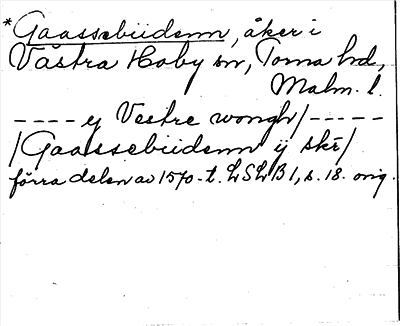 *Gaassebiidenn, åker i
Västra Hoby sn, Torna hd,
Malm. l.
---- ij Vestre wongh/-----
/Gaassebiidenn ij skr/
förra delen av 1570-t. LSLB 1, s. 18. orig.